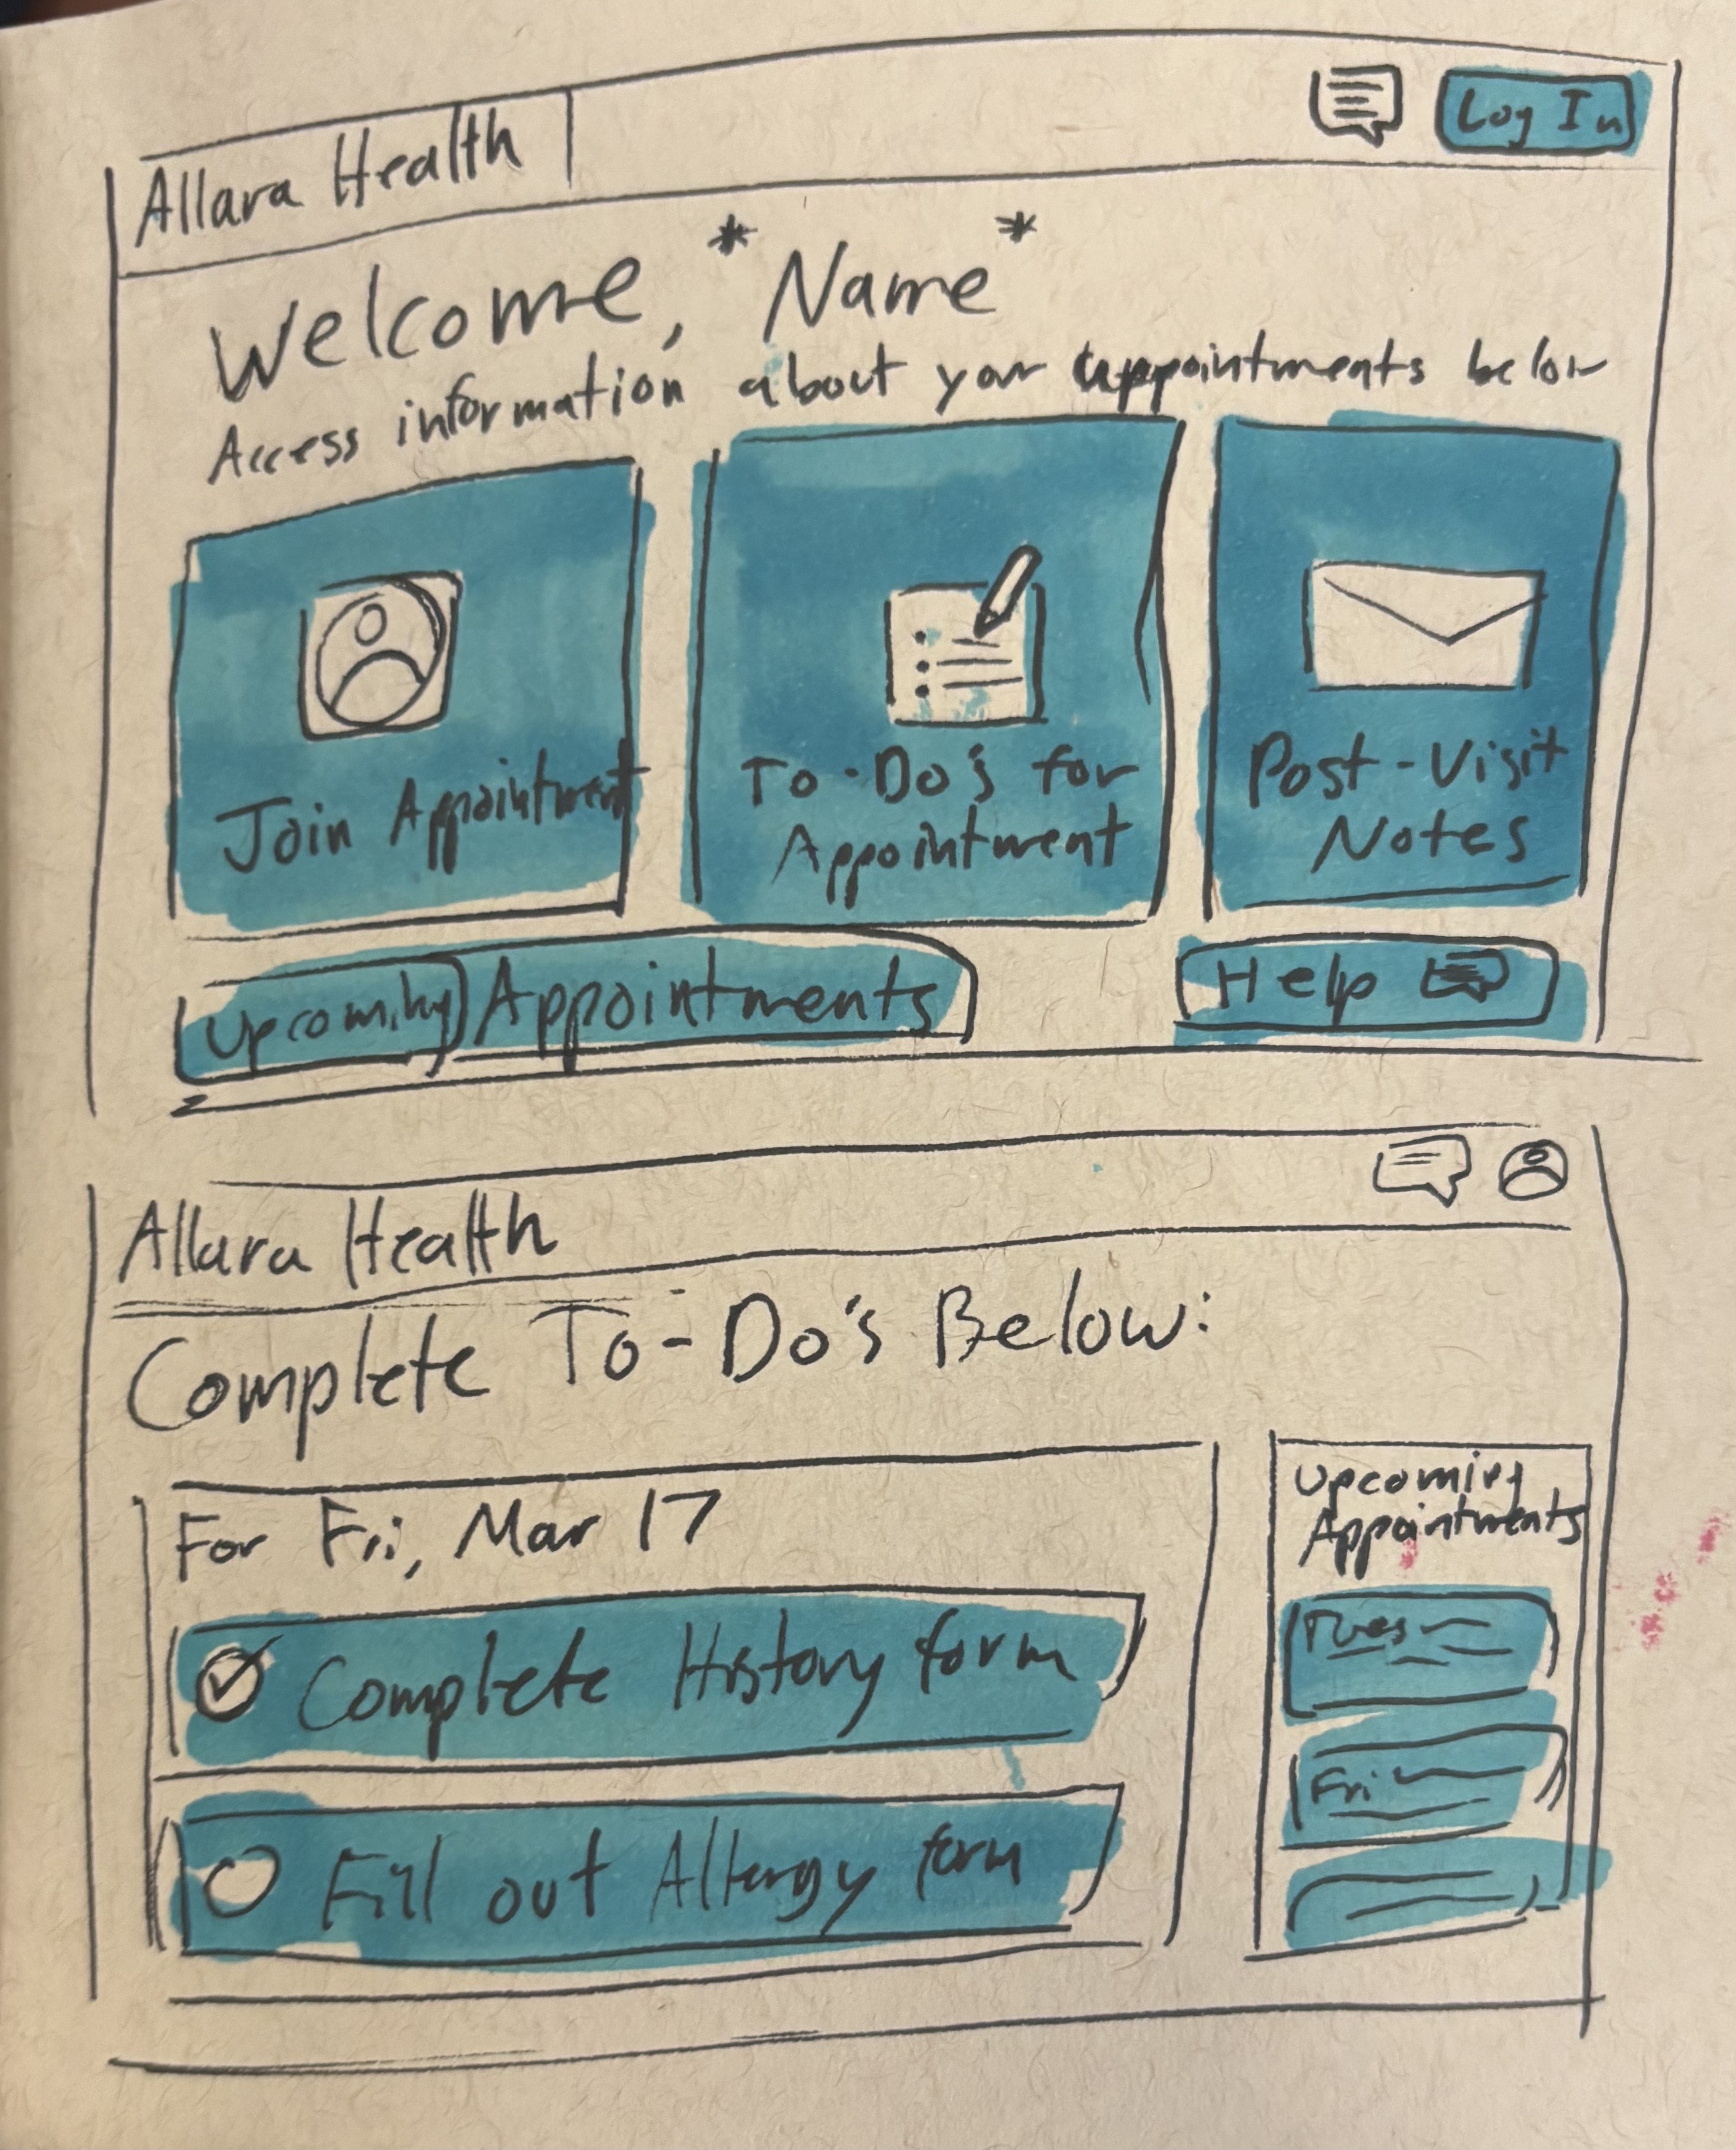 Allara Health
Log In
Welcome, *Name*
Access information about your appointments below
Join Appointment
To-Do's for
Appointment
Post-Visit
Notes
Upcoming Appointments
Help
Allara Health
Complete To-Do's Below:
For Fri, Mar 17
Complete History form
Fill out Allergy form
Upcoming
Appointments
Tues
Fri